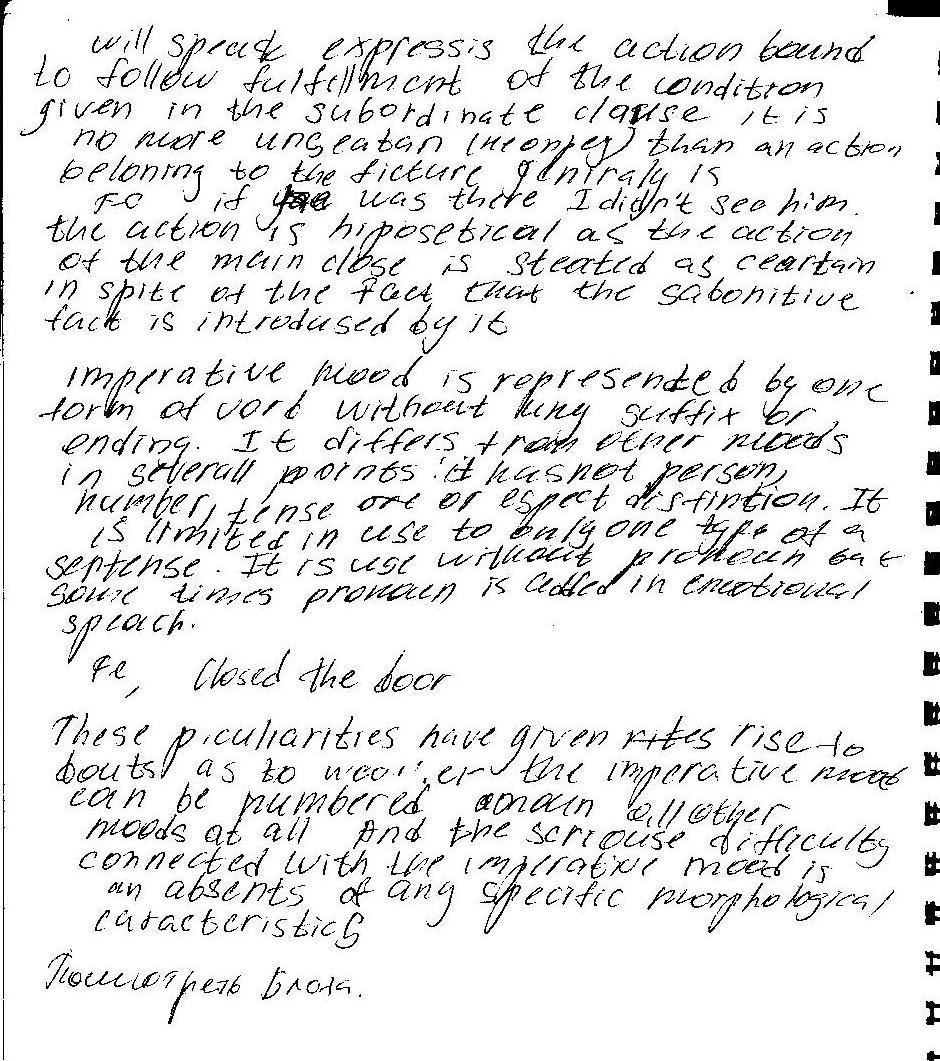 will speack expressis the action bound
to follow fulfillment of the condition
given in the subordinate clause it is
no more unseatan than an action
beloning to the ficture generaly is
FC if was there I didn't see him.
the action is hiposetical as the action
of the main close is steated as ceartain
in spite of the fact that the sabonitive
fact is introdused by it
Imperative mood is represented by one
form of vorb without any suffix or
ending. It differs from other moods
in severall points: it has not person,
number, tense or espect distintion. It
is limited in use to only one type of a
sentense. It is use without pronoun but
some times pronoun is added in emotional
speach.
Fe, Closed the door
These piculiarities have given rise to
douts as to the imperative mood
can be numbered all other
moods at all And the scriouse difficulty
connected with the imperative mood is
an absents of any specific morphological
caracteristics
Посмотреть Блоха.